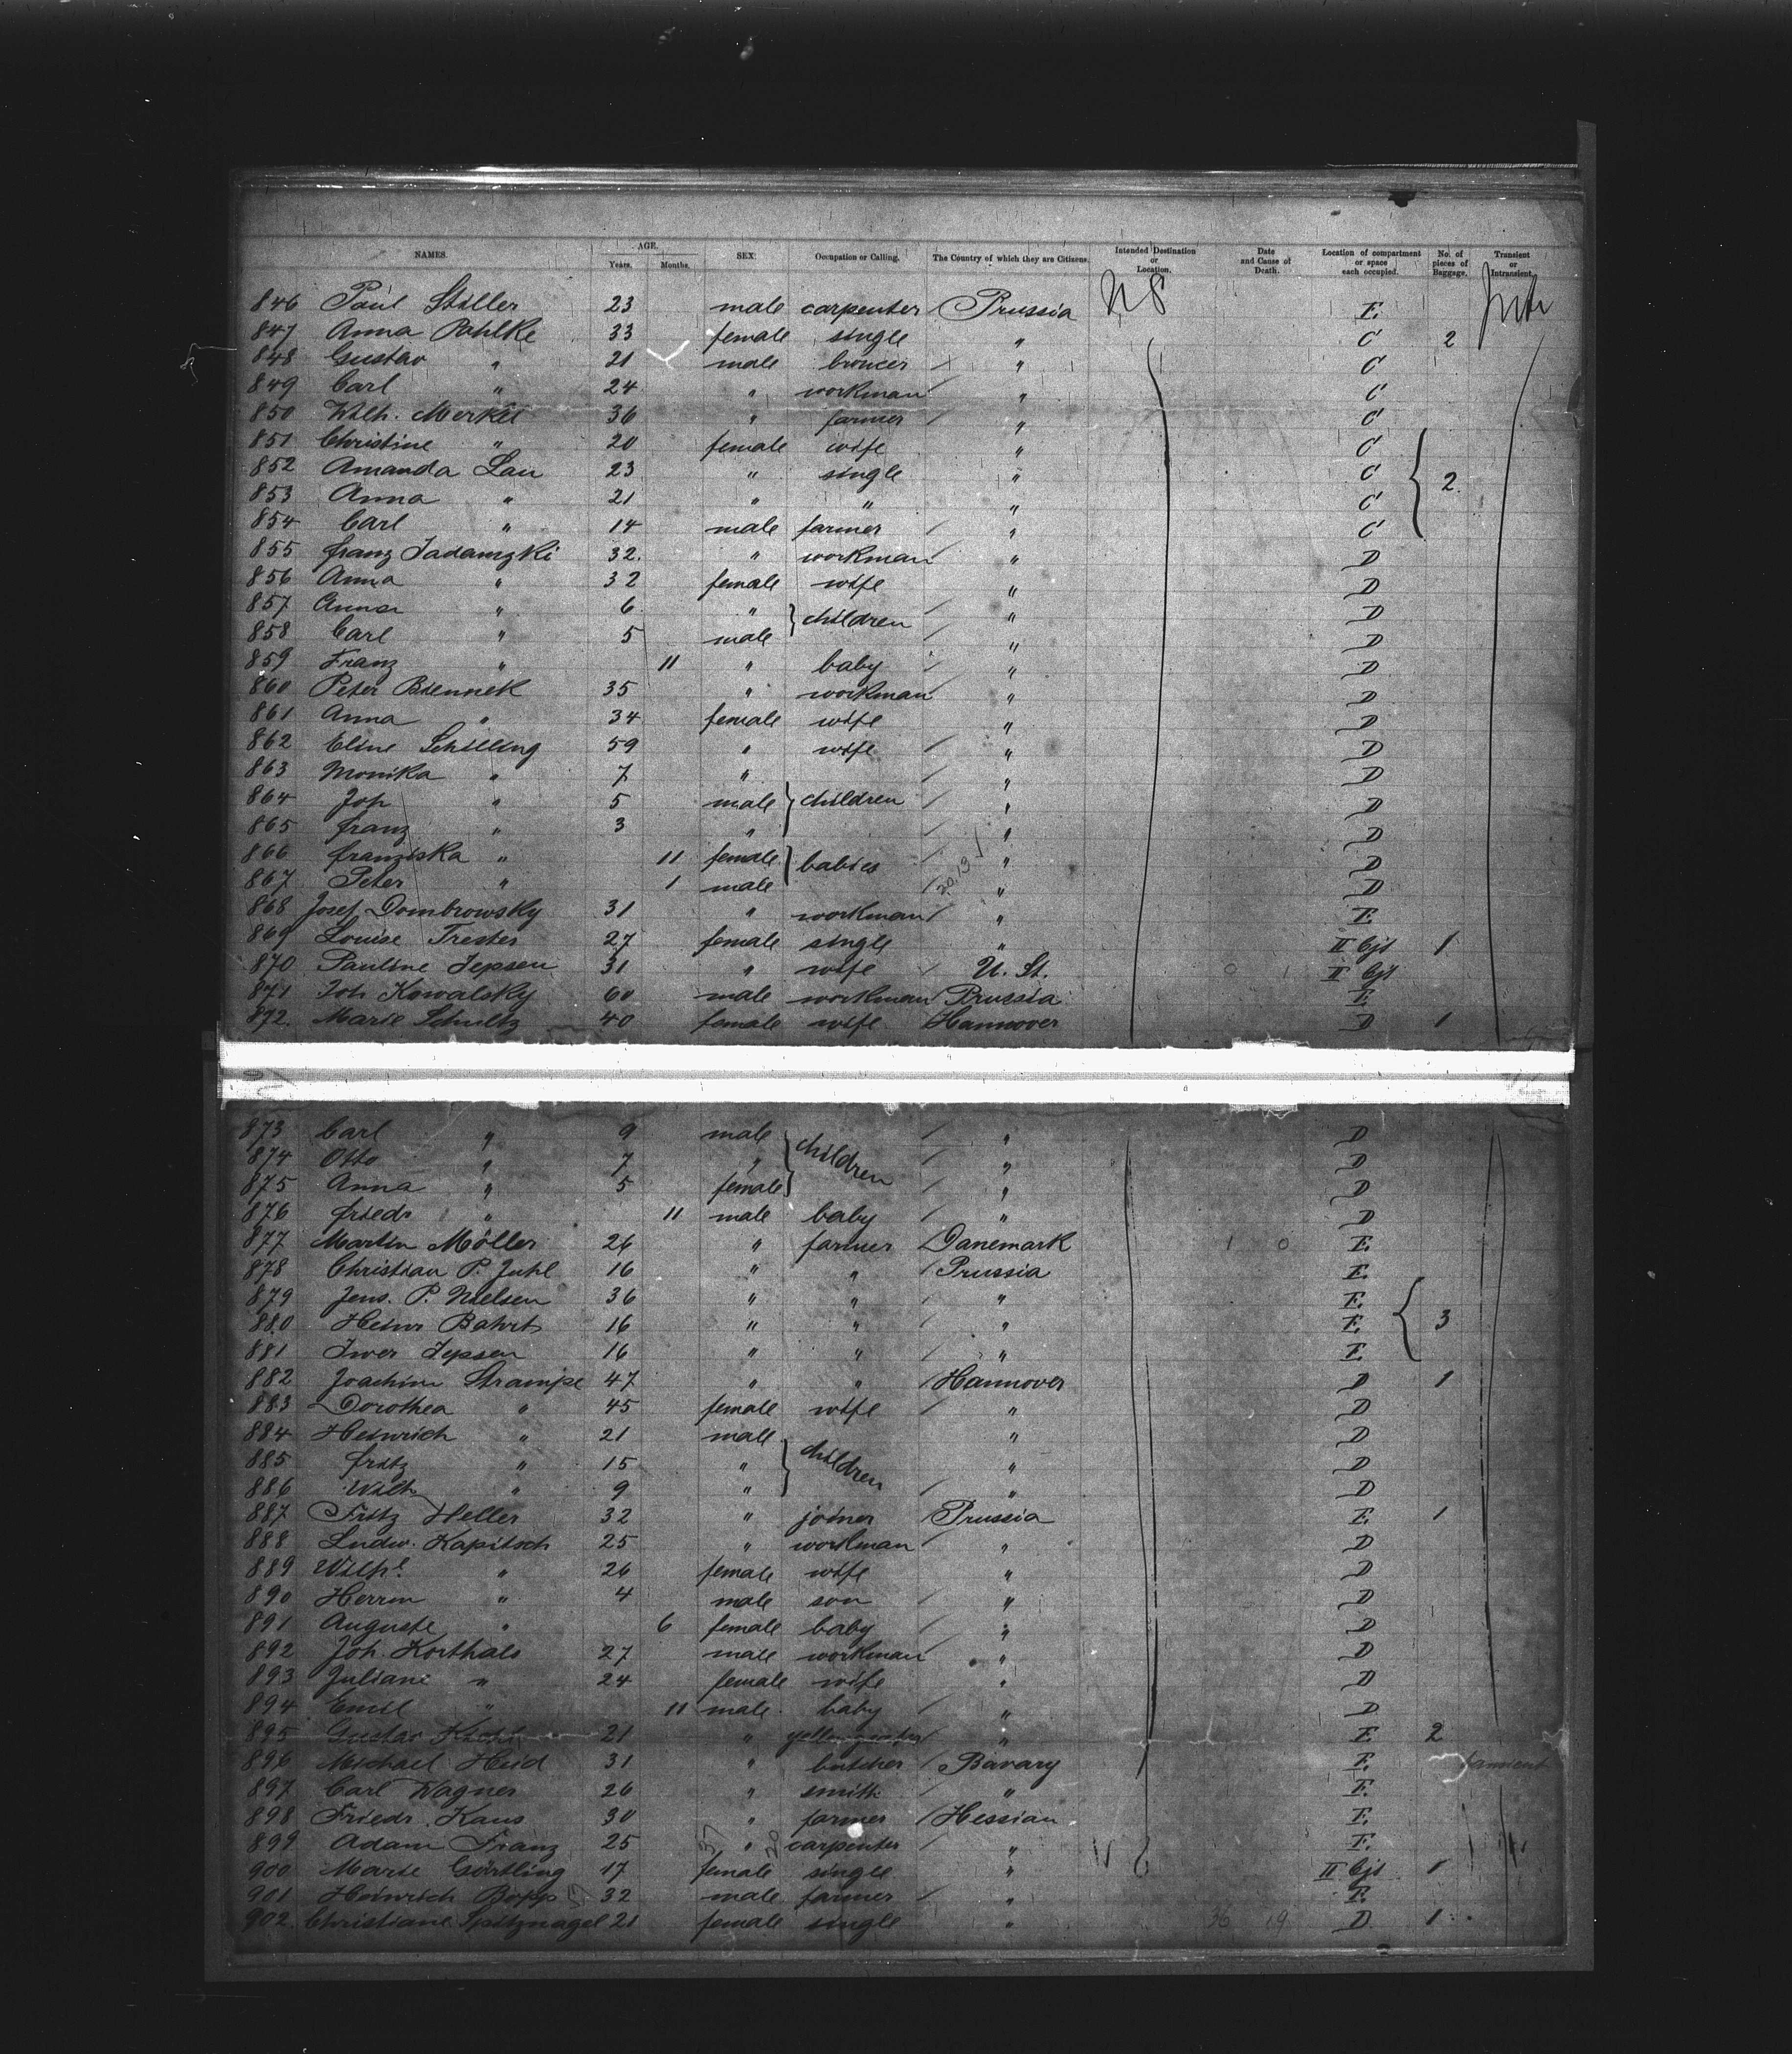 NAMES. AGE. Years. Months. SEX Occupation or Calling. The Country of which they are Citizens. Intended Destination or Location. Date and Cause of Death. Location of compartment or space each occupied. No. of pieces of Baggage. Transient or Intransient.
846 Paul Stiller 23 male carpenter Prussia E.
847 Anna Pahlke 33 female single " C 2
848 Gustav " 21 male " C
849 Carl " 24 " workman " C
850 Wilh. Merkel 36 " farmer " C
851 Christine " 20 female wife " C
852 Amanda Lau 23 " single " C 2
853 Anna " 21 " " " C
854 Carl " 14 male farmer " C
855 Franz 32 " workman " D
856 Anna " 32 female wife " D
857 " 6 " children " D
858 Carl " 5 male " D
859 Franz " 11 " baby " D
860 Peter Biennek 35 " workman " D
861 Anna " 34 female wife " D
862 Eline Schilling 59 " wife " D
863 Monika " 7 " " D
864 Joh " 5 male children " D
865 Franz " 3 " " D
866 Franziska " 11 female babies " D
867 Peter " 1 male " D
868 Josef Dombrowsky 31 " workman " E
869 Louise Trester 27 female single " II Cjt 1
870 Pauline Jepsen 31 " wife U. St. II Cjt
871 Joh Kowalsky 60 male workman Prussia E
872. Marie Schultz 40 female wife Hannover D 1
873 Carl " 9 male children " D
874 Otto " 7 " " D
875 Anna " 5 female " D
876 Friedr " 11 male baby " D
877 Martin Möller 26 " farmer Danemark 1 0 E.
878 Christian P. Juhl 16 " " Prussia E.
879 Jens. P. Nielsen 36 " " " E.
880 Heinr Bahrt 16 " " " E. 3
881 Iwer Jepsen 16 " " " E.
882 Joachim Strampe 47 " " Hannover D 1
883 Dorothea " 45 female wife " D
884 Heinrich " 21 male " D
885 Fritz " 15 " children " D
886 Wilh " 9 " " D
887 Fritz Heller 32 " joiner Prussia E. 1
888 Ludw. Kapitsch 25 " workman " D
889 Wilhe " 26 female wife " D
890 Herrm " 4 male son " D
891 Auguste " 6 female baby " D
892 Joh. Korthals 27 male workman " D
893 Juliane " 24 female wife " D
894 Emil " 11 male baby " D
895 Gustav 21 " " E 2
896 Michael Heid 31 " butcher Bavary E.
897 Carl Wagner 26 " smith " E.
898 Friedr. Kaus 30 " farmer Hessian E.
899 Adam Franz 25 " carpenter " E.
900 Marie Görtling 17 female single " II Cjt 1
901 Heinrich Bopp 32 male farmer " E.
902. Christiane Spitznagel 21 female single " 36 19 D. 1